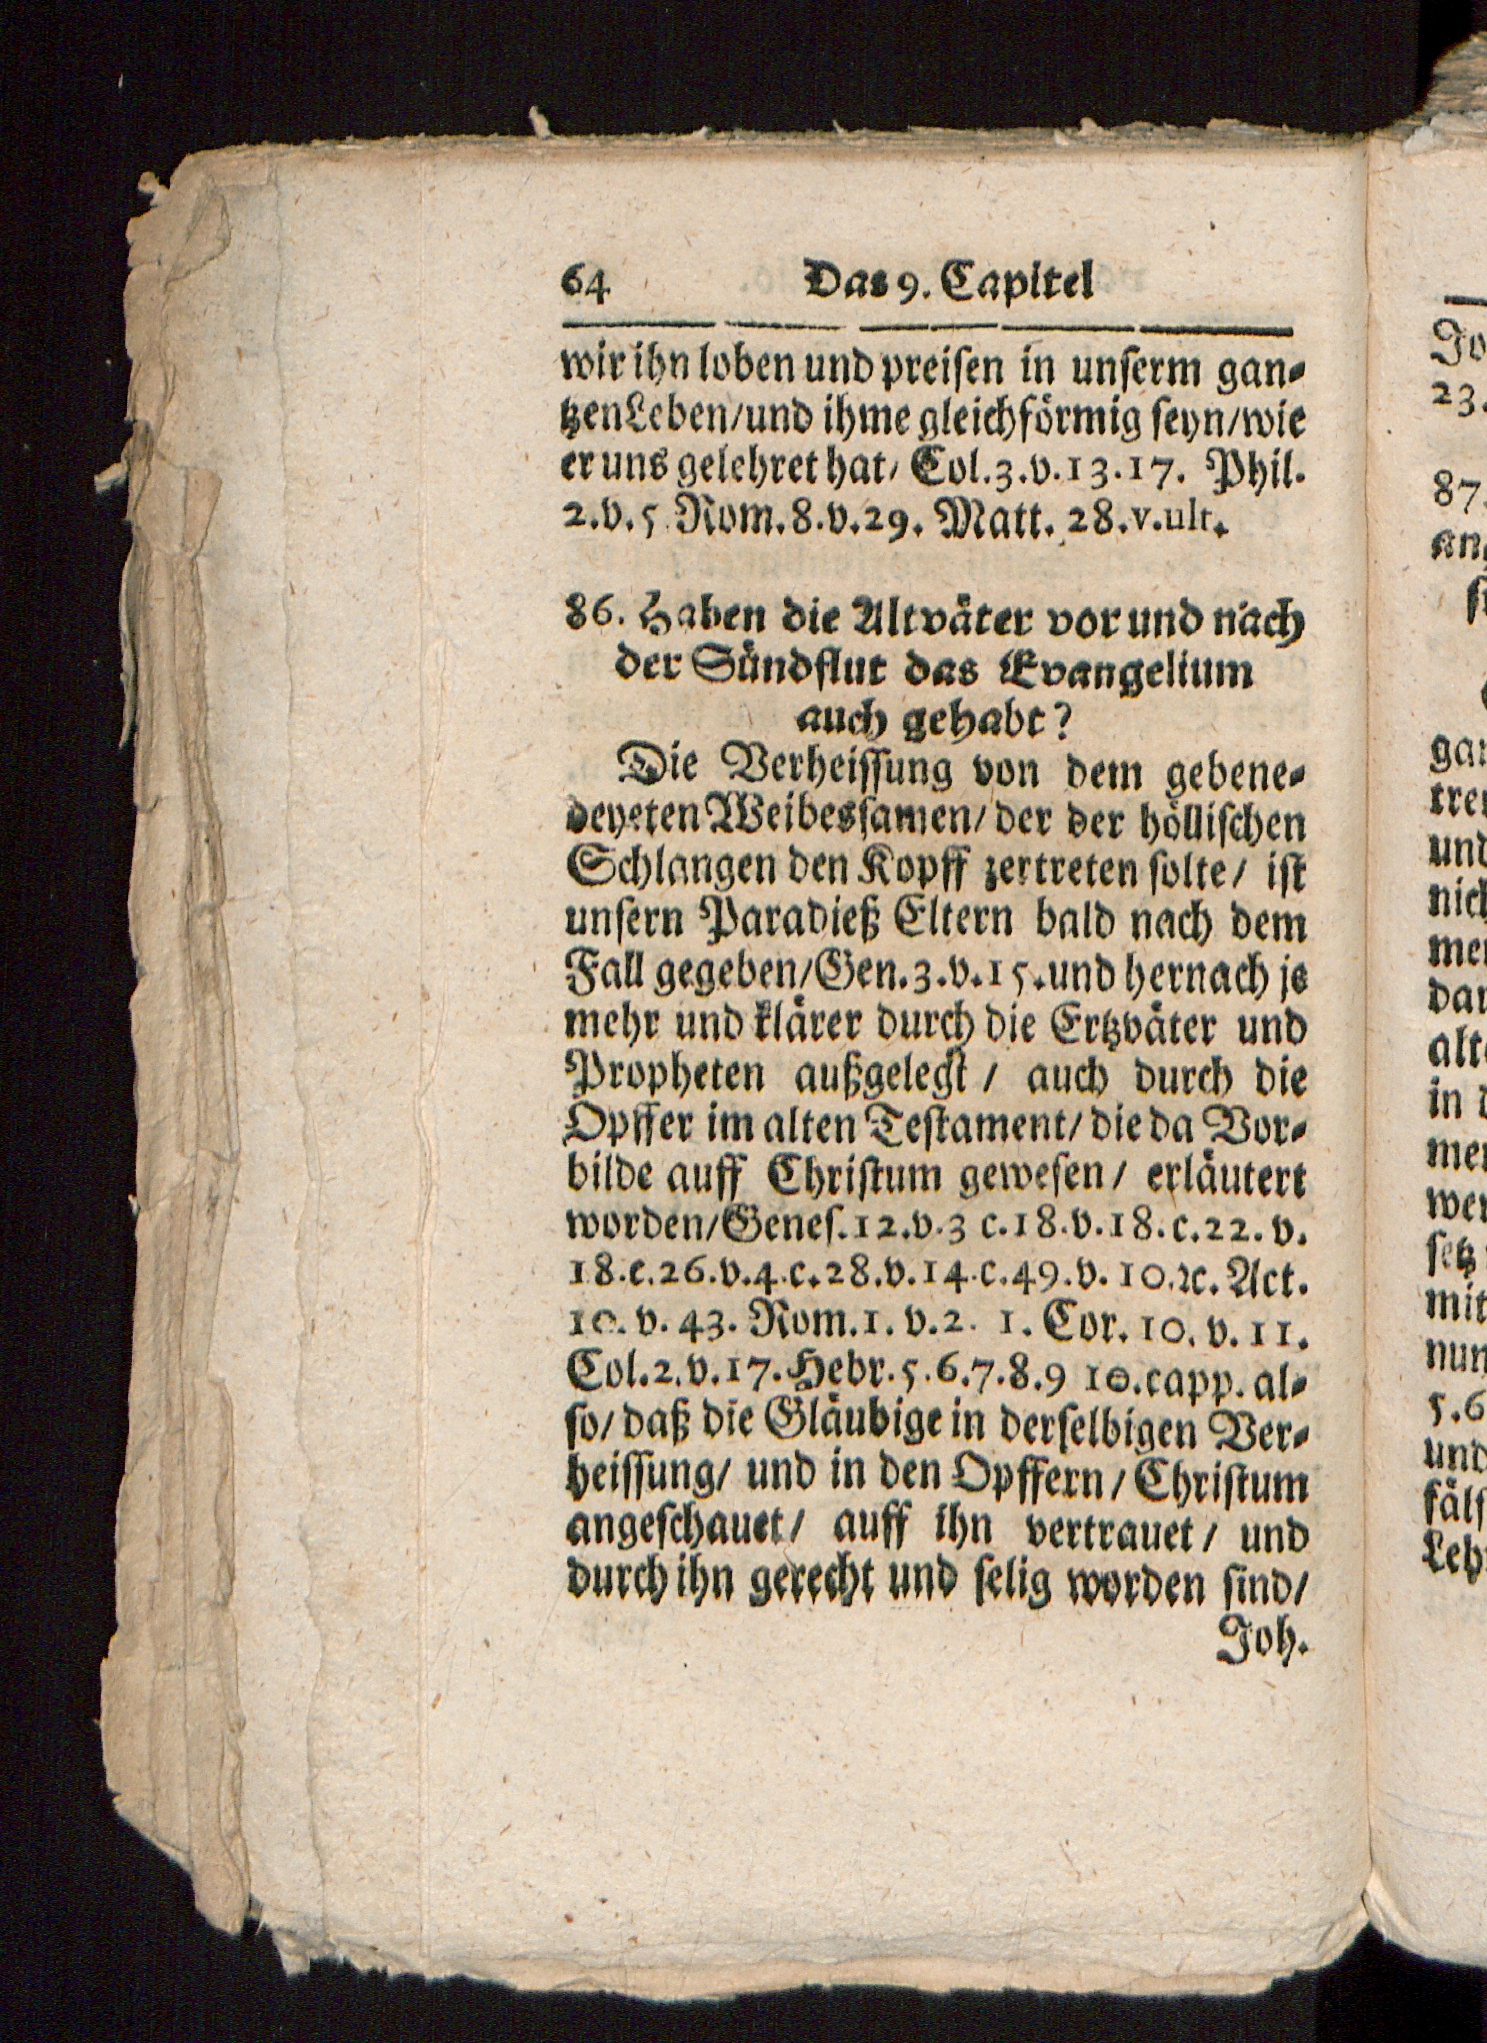 64 Das 9. Capitel
wir ihn loben und preisen in unserm gan-
tzen Leben/und ihme gleichförmig seyn/wie
er uns gelehret hat/ Col.3.v.13.17. Phil.
2.v.5 Rom.8.v.29. Matt. 28.v.ult.
86. Haben die Altväter vor und nach
der Sündflut das Evangelium
auch gehabt?
Die Verheissung von dem gebene-
deyeten Weibessamen/ der der höllischen
Schlangen den Kopff zertreten solte/ ist
unsern Paradieß Eltern bald nach dem
Fall gegeben/Gen.3.v.15.und hernach je
mehr und klärer durch die Ertzväter und
Propheten außgelegt / auch durch die
Opffer im alten Testament/ die da Vor-
bilde auff Christum gewesen/ erläutert
worden/Genes.12.v.3 c.18.v.18.c.22.v.
18.c.26.v.4.c.28.v.14.c.49.v.10.ꝛc. Act.
10.v.43. Rom.1.v.2. 1. Cor.10.v.11.
Col.2.v.17.Hebr.5.6.7.8.9 10.capp. al-
so/ daß die Gläubige in derselbigen Ver-
heissung/ und in den Opffern/ Christum
angeschauet/ auff ihn vertrauet/ und
durch ihn gerecht und selig worden sind/
Joh.
Jo
23.
87.
und
nich
in
mit
5.6
und